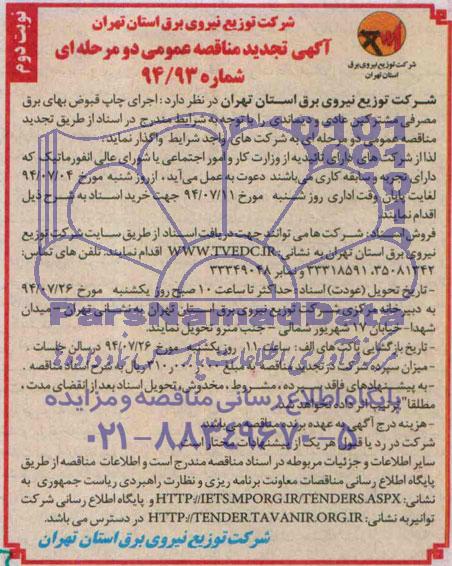 نوبت دوم
شرکت توزیع نیروی برق استان تهران
آگهی تجدید مناقصه عمومی دو مرحله ای
شماره ۹۴/۹۳
شرکت توزیع نیروی برق
استان تهران
شرکت توزیع نیروی برق استان تهران در نظر دارد: اجرای چاپ قبوض بهای برق
مصرفی مشترکین عادی و دیماندی را با توجه به شرایط مندرج در اسناد از طریق تجدید
مناقصه عمومی دو مرحله ای به شرکت های واجد شرایط واگذار نماید.
لذا از شرکت های دارای تائیدیه از وزارت کار و امور اجتماعی یا شورای عالی انفورماتیک که
دارای تجربه و سابقه کاری می باشند دعوت به عمل می آید، از روز شنبه مورخ ۹۴/۰۷/۰۴
لغایت پایان وقت اداری روز شنبه مورخ ۹۴/۰۷/۱۱ جهت خرید اسناد به شرح ذیل
اقدام نمایند.
فروش اسناد: شرکت ها می توانند جهت دریافت اسناد از طریق سایت شرکت توزیع
نیروی برق استان تهران به نشانی: WWW.TVEDC.IR اقدام نمایند. تلفن های تماس:
۳۵۰۸۱۲۴۲، ۳۳۳۱۸۵۹۱ و نمابر ۳۳۳۴۹۰۴۸
- تاریخ تحویل (عودت) اسناد: حداکثر تا ساعت ۱۰ صبح روز یکشنبه مورخ ۹۴/۰۷/۲۶
به دبیرخانه مرکزی شرکت توزیع نیروی برق استان تهران به نشانی تهران - میدان
شهدا- خیابان ۱۷ شهریور شمالی - جنب مترو تحویل نمایند.
- تاریخ بازگشایی پاکت های الف: ساعت ۱۱ روز یکشنبه مورخ ۹۴/۰۷/۲۶ در سالن جلسات.
- میزان سپرده شرکت در تجدید مناقصه به مبلغ ریال به شرح اسناد مناقصه.
- به پیشنهادهای فاقد سپرده، مشروط، مخدوش و تحویل اسناد بعد از انقضای مدت،
مطلقا" ترتیب اثر داده نخواهد شد.
- هزینه درج آگهی به عهده برنده مناقصه می باشد.
شرکت در رد یا قبول هر یک از پیشنهادات مختار است.
سایر اطلاعات و جزئیات مربوطه در اسناد مناقصه مندرج است و اطلاعات مناقصه از طریق
پایگاه اطلاع رسانی مناقصات معاونت برنامه ریزی و نظارت راهبردی ریاست جمهوری به
نشانی: HTTP://IETS.MPORG.IR/TENDERS.ASPX و پایگاه اطلاع رسانی شرکت
توانیر به نشانی: HTTP://TENDER.TAVANIR.ORG.IR در دسترس می باشد.
شرکت توزیع نیروی برق استان تهران
ParsNamadData
پایگاه اطلاع رسانی مناقصه و مزایده
۰۲۱-۸۸۳۴۹۶۷۰-۵